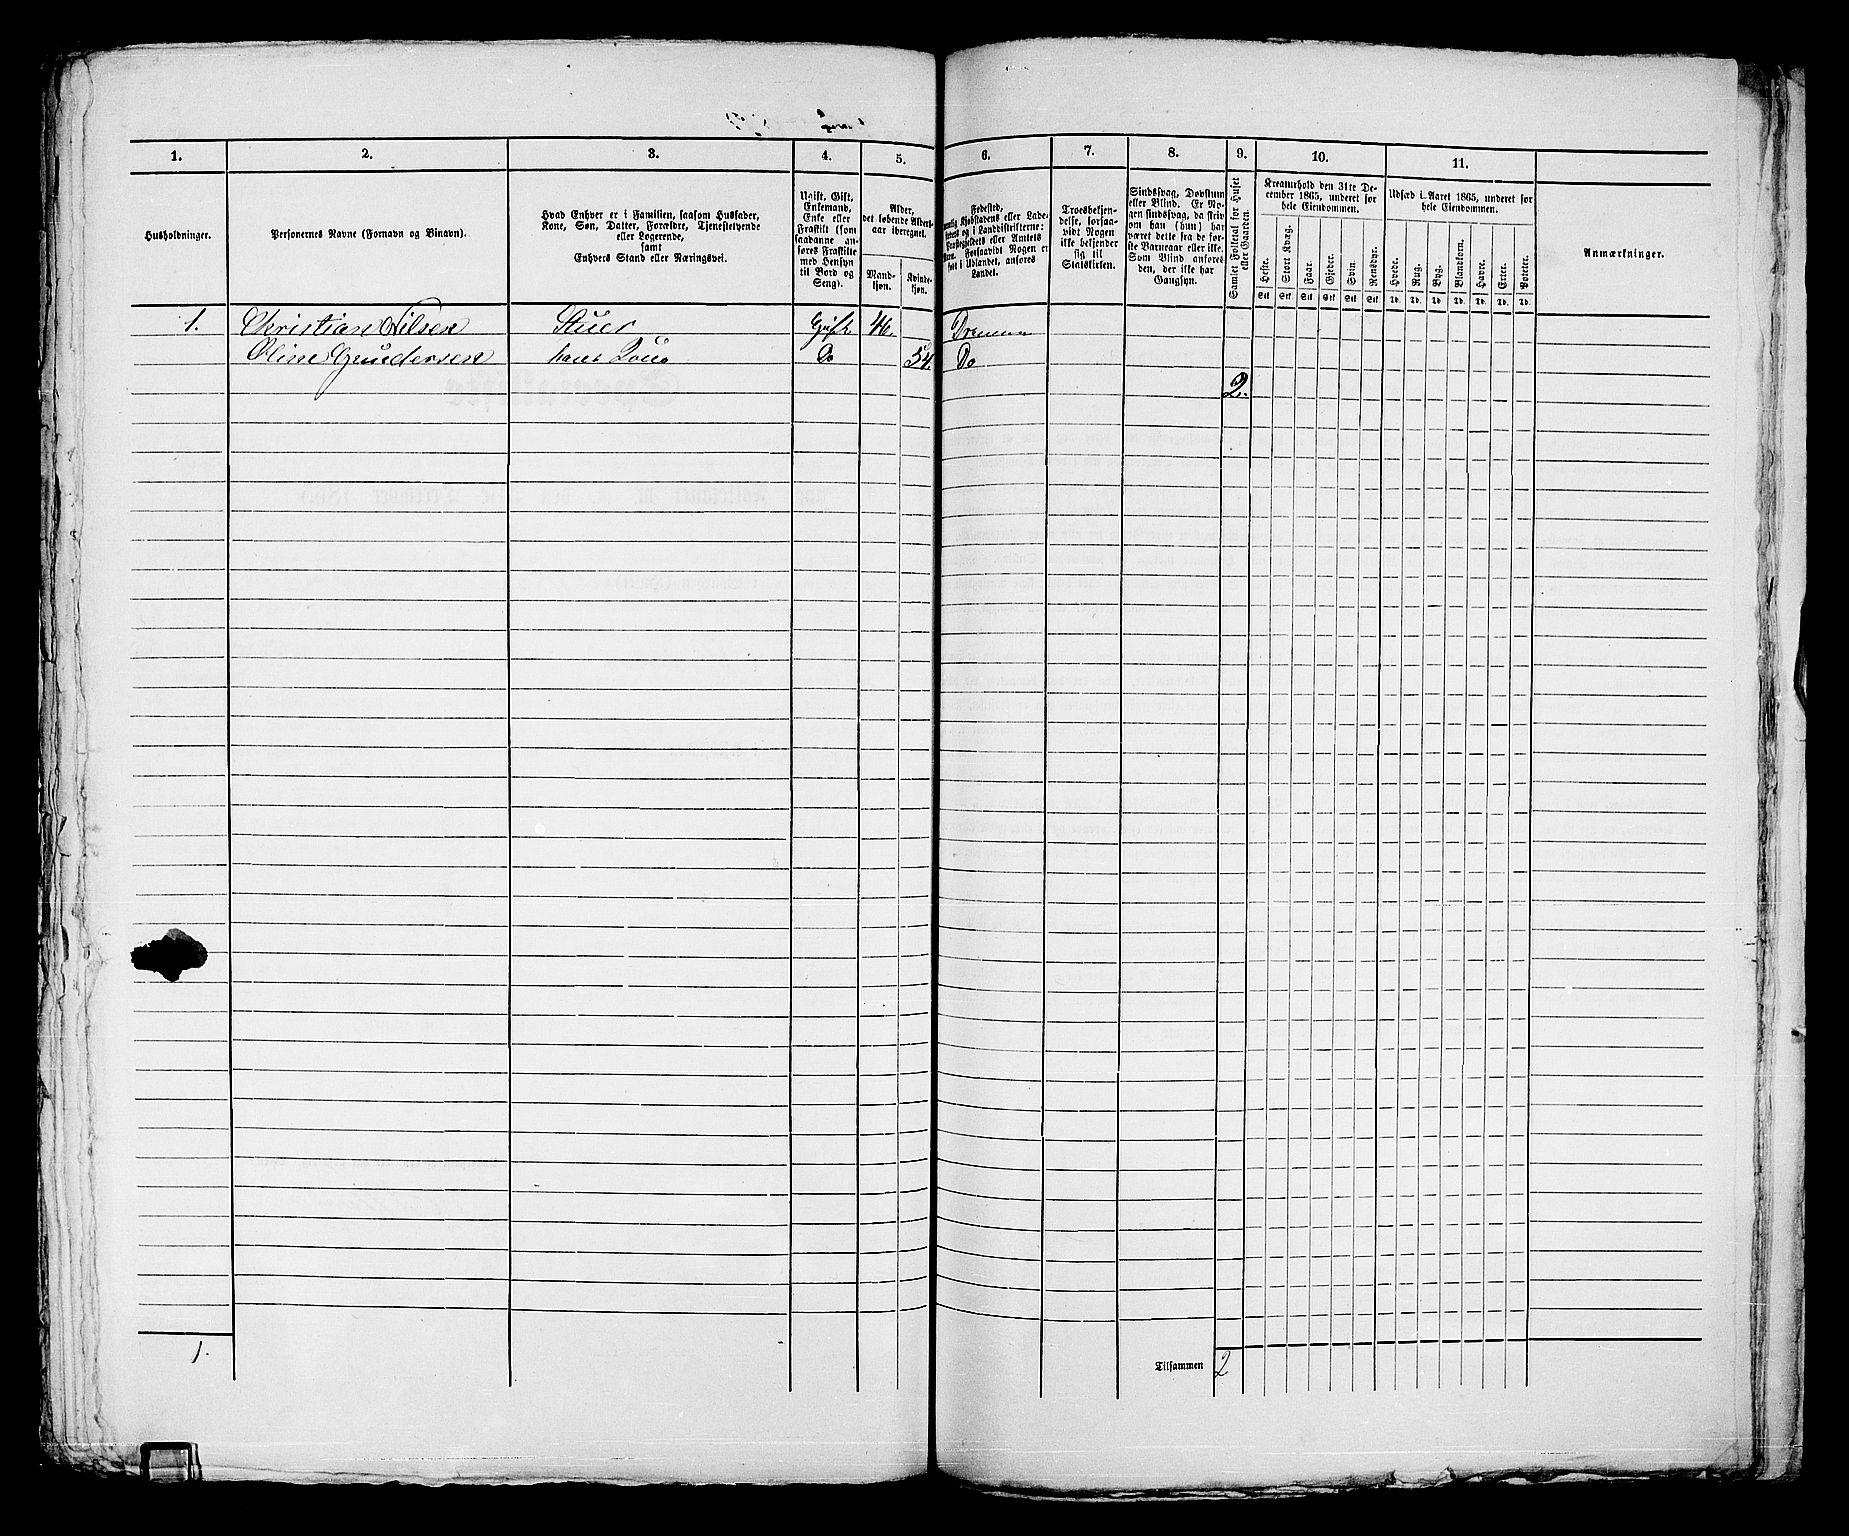 1. 2. 3. 4. 5. 6. 7. 8. 9. 10. 11.
Husholdninger.
Personernes Navne (Fornavn og Binavn).
Hvad Enhver er i Familien, saasom Husfader,
Kone, Søn, Datter, Forældre, Tjenestetyende
eller Logerende,
samt
Enhvers Stand eller Næringsvei.
Ugift, Gift,
Enkemand,
Enke eller
Fraskilt (som
saadanne an-
føres Fraskilte
med Hensyn
til Bord og
Seng).
Alder,
det løbende Alders-
aar iberegnet.
Mand-
kjøn.
Kvinde-
kjøn.
Fødested,
Kjøbstadens eller Lade-
og i Landdistrikterne:
Præstegjeldets eller Amtets
Navn. Forsaavidt Nogen er
født i Udlandet, anføres
Landet.
Troesbekjen-
delse, forsaa-
vidt Nogen
ikke bekjender
sig til
Statskirken.
Sindssvag, Døvstum
eller Blind. Er No-
gen sindssvag, da skriv
om han (hun) har
været dette fra de før-
ste Barneaar eller ikke.
Som Blind anføres
den, der ikke har
Gangsyn.
Samlet Folketal for Huset
eller Gaarden.
Kreaturhold den 31te De-
cember 1865, underet for
hele Eiendommen.
Heste. Stort Kvæg. Faar. Gjeder. Svin. Rensdyr.
Stk Stk Stk Stk Stk Stk
Udsæd i Aaret 1865, underet for
hele Eiendommen.
Hvede. Rug. Byg. Blandkorn. Havre. Erter. Poteter.
Td. Td. Td. Td. Td. Td. Td.
Anmærkninger.
1. Christian Nilsen Stuer Gift 46. Drammen
Oline Gundersen hans Kone Do 54. Do
2.
1. Tilsammen 2